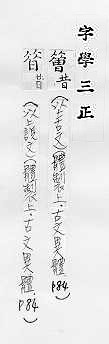 字學三正
昔(以上古文)(體製上.古文異體 P84)
昔(以上說文)(體製上.古文異體.P84)